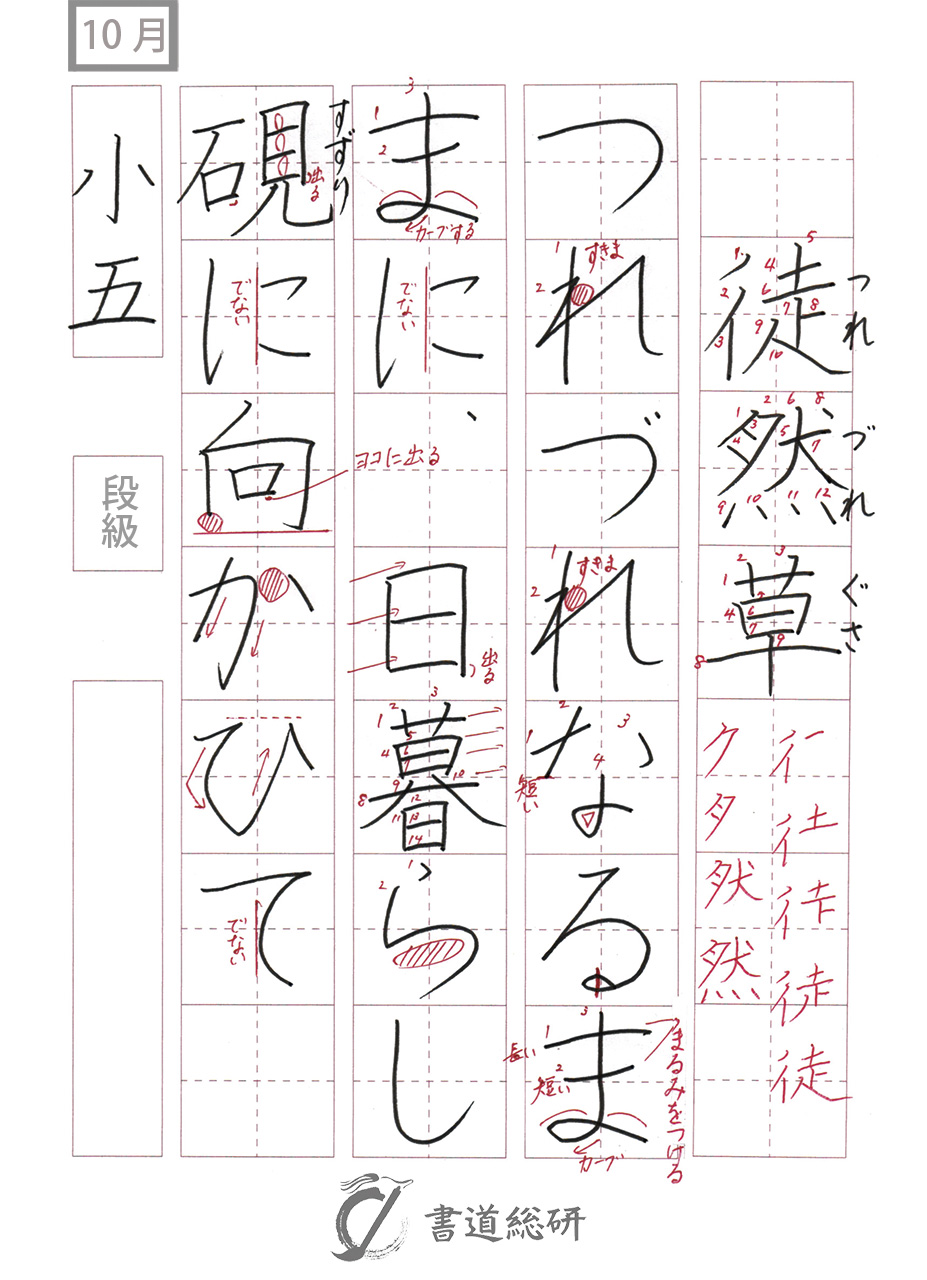 10月
徒然草
つれづれぐさ
つれづれなるま
まに、日暮らし
硯に向かひて
すずり
小五
段級
すきま
すきま
短い
長い
短い
まるみをつける
カーブ
カーブする
でない
出る
出る
でない
ヨコに出る
でない
書道総研